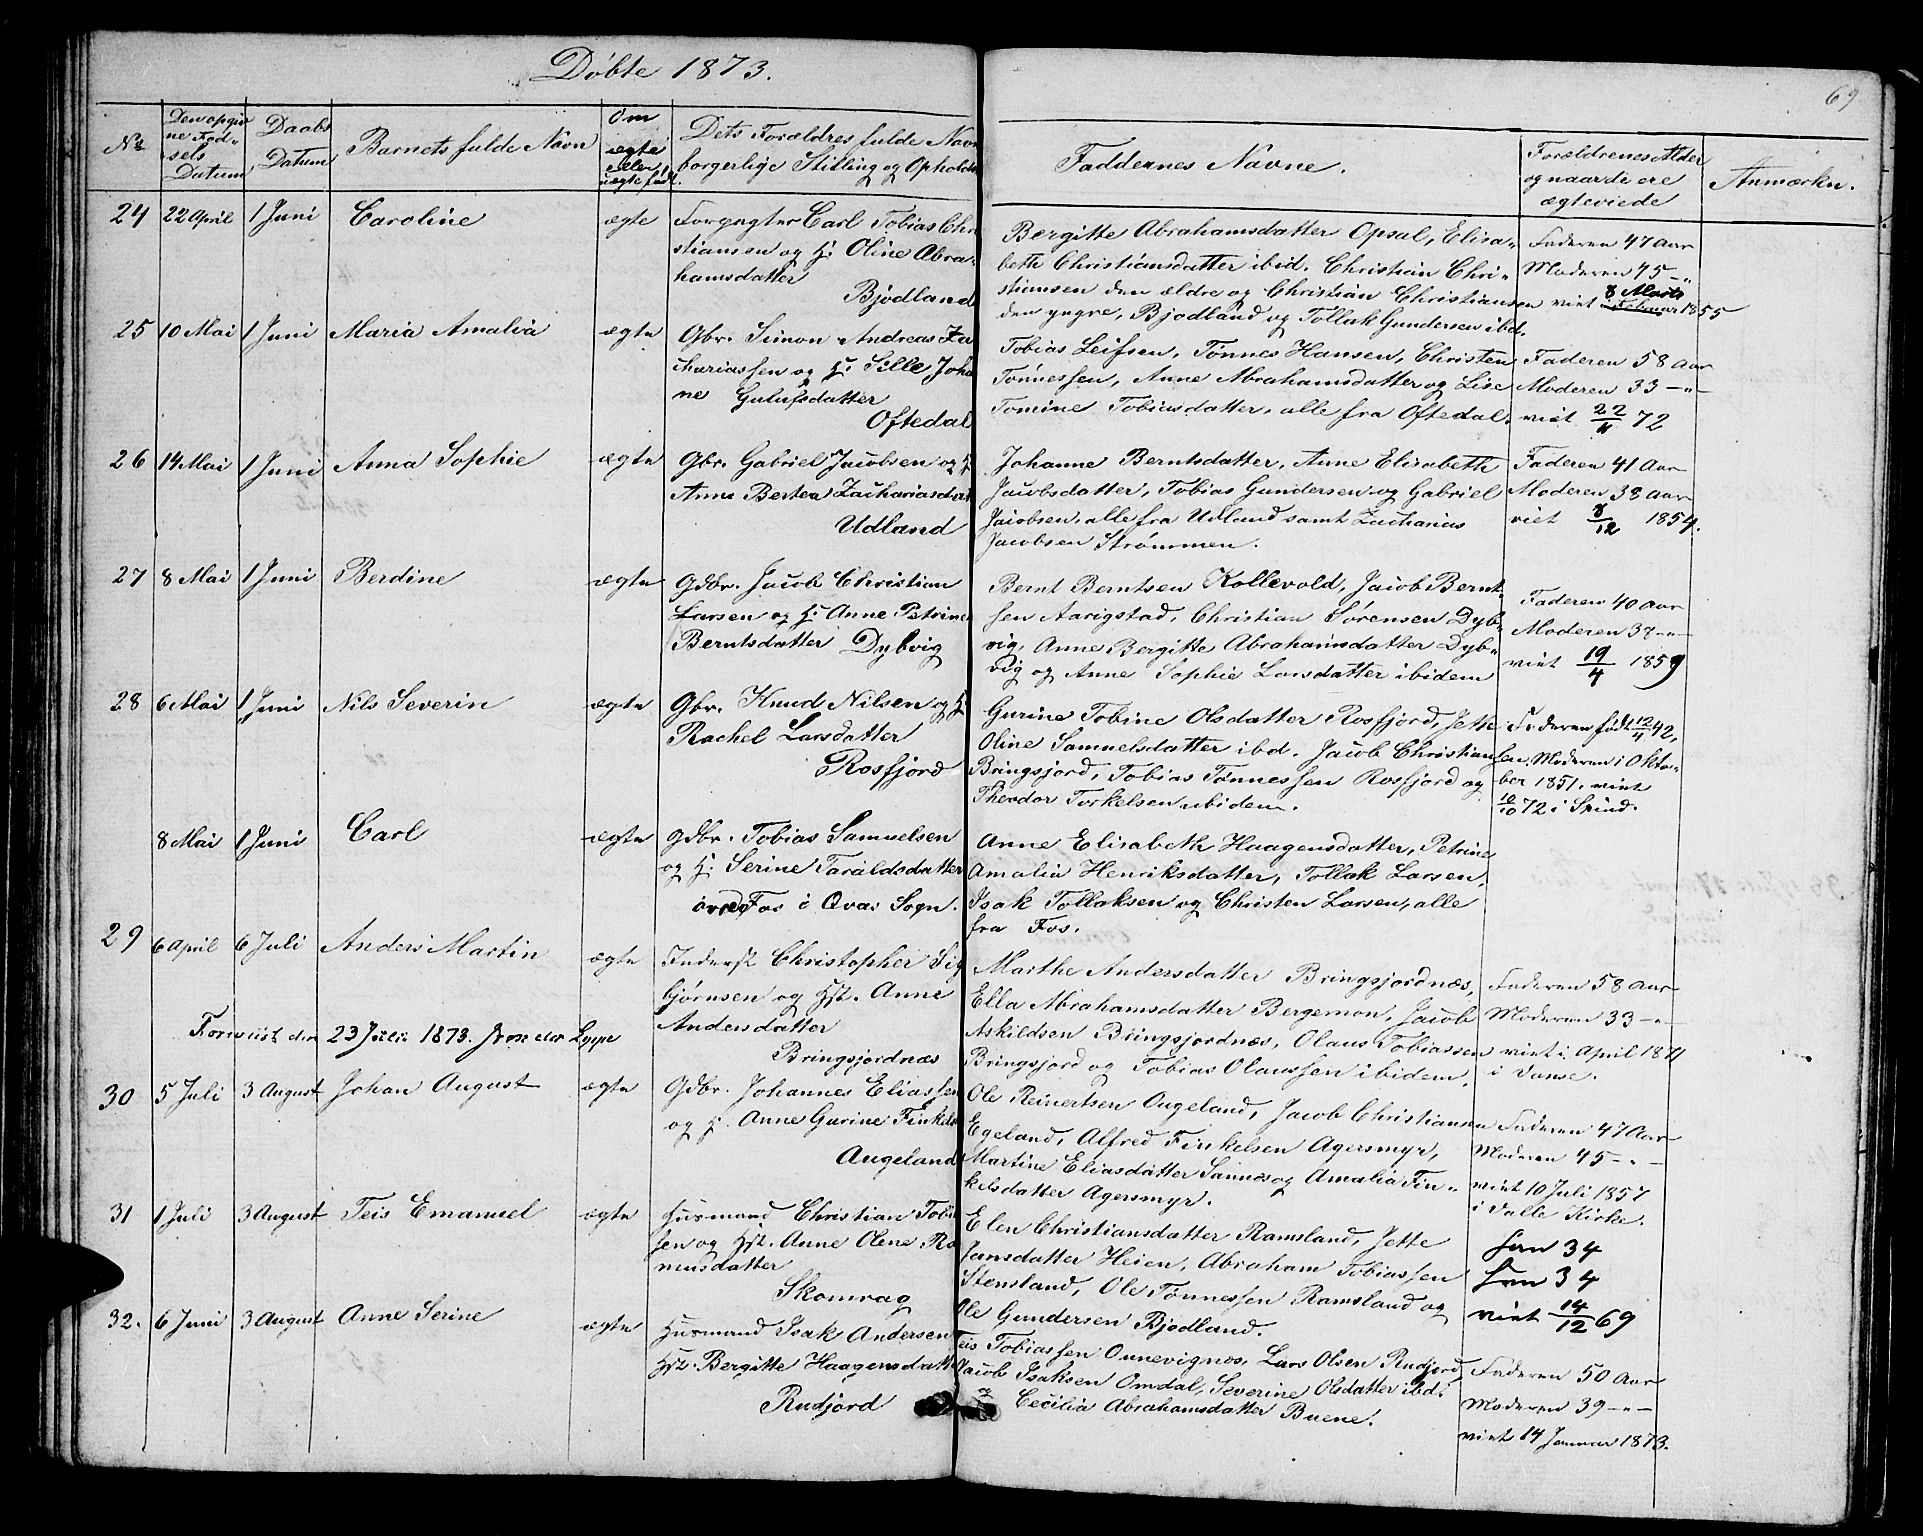 Döbte 1873.
69
No
Den opgiv
ne Föd-
sels
Datum
Daabs
Datum
Barnets fulde Navn
Om
ægte
eller
uægte født.
Dets Forældres fulde Navn
borgerlige Stilling og Opholds
Faddernes Navne.
Forældrenes Alder
og naar de ere
ægteviede
Anmærkn.
24 22 April 1 Juni Caroline ægte Forpagter Carl Tobias Chri
stiansen og H: Oline Abra-
hamsdatter
Bjödland
Bergitte Abrahamsdatter Opsal, Elisa-
beth Christiansdatter ibid. Christian Chri-
stiansen den ældre og Christian Christiansen
den yngre, Bjödland og Tollak Gundersen ibd.
Faderen 47 Aar
Moderen 45 -"-
viet 8 Marts 1855
25 10 Mai 1 Juni Maria Amalia ægte Gbr. Simon Andreas Za
chariassen og H: Sille Joha
ne Gulufsdatter
Oftedal
Tobias Leifsen, Tönnes Hansen, Christen
Tönnessen, Anne Abrahamsdatter og Lise
Tomine Tobiasdatter, alle fra Oftedal.
Faderen 58 Aar
Moderen 33 -"-
viet 22/11 72
26 14 Mai 1 Juni Anna Sophie ægte Gbr. Gabriel Jacobsen og H
Anne Bertea Zachariasdatt
Udland
Johanne Berntsdatter, Anne Elisabeth
Jacobsdatter, Tobias Gundersen og Gabriel
Jacobsen, alle fra Udland samt Zacharias
Jacobsen Strömmen.
Faderen 41 Aar
Moderen 38 Aar
viet 8/12 1854.
27 8 Mai 1 Juni Berdine ægte Gdbr. Jacob Christian
Larsen og H: Anne Petrine
Berntsdatter Dybvig
Bernt Berntsen Kollevold, Jacob Bernt-
sen Aarigstad, Christian Sörensen Dyb-
vig, Anne Bergitte Abrahamsdatter Dyb-
vig og Anne Sophie Larsdatter ibidem
Faderen 40 Aar
Moderen 37 -"-
viet 19/4 1859
28 6 Mai 1 Juni Nils Severin ægte Gbr. Knud Nilsen og H
Rachel Larsdatter
Rosfjord
Gurine Tobine Olsdatter Rosfjord, Jette
Oline Samuelsdatter ibd. Jacob Christian
Bringsjord, Tobias Tönnessen Rosfjord og
Theodor Torkelsen ibidem.
Faderen født 12/4 42,
sen, Moderen i Okto-
ber 1851, viet
10/10 72 i Spind.
8 Mai 1 Juni Carl ægte Gdbr. Tobias Samuelsen
og H: Serine Taraldsdatter
övre Fos i Qvas Sogn.
Anne Elisabeth Haagensdatter, Petrine
Amalia Henriksdatter, Tollak Larsen,
Isak Tollaksen og Christen Larsen, alle
fra Fos.
29 6 April 6 Juli Anders Martin ægte Inderst Christopher Sig
björnsen og Hst. Anne
Andersdatter
Bringsjordnæs
Forevist den 23 Juli 1873.
Marthe Andersdatter Bringsjordnæs,
Ella Abrahamsdatter Bergemon, Jacob
Askildsen Bringsjordnæs, Olaus Tobiassen
Bringsjord og Tobias Olaussen ibidem.
Faderen 58 Aar
Moderen 33 -"-
viet i April 1871
i Vanse.
30 5 Juli 3 August Johan August ægte Gdbr. Johannes Eliassen
og H. Anne Gurine Finkels
Augeland
Ole Reinertsen Ougeland, Jacob Christiansen
Egeland, Alfred Finkelsen Agersmyr,
Martine Eliasdatter Sannes og Amalia Fin-
kelsdatter Agersmyr.
Faderen 47 Aar
Moderen 45 -"-
viet 10 Juli 1857
i Valle Kirke.
31 1 Juli 3 August Teis Emanuel ægte Husmand Christian Tobia
sen og Hst. Anne Olene Ra
musdatter
Skomrag
Elen Christiansdatter Ramsland, Jette
Jansdatter Heien, Abraham Tobiassen
Stensland, Ole Tönnessen Ramsland og
Ole Gundersen Bjödland.
Han 34
Hun 34
viet 14/12 69
32. 6 Juni 3 August Anne Serine ægte Husmand Isak Andersen
Hst. Bergitte Haagensdatte
Rudjord
Teis Tobiassen Ounevignes, Lars Olsen Rudjord,
Jacob Isaksen Omdal, Severine Olsdatter ibd.
Cecilia Abrahamsdatter Buene.
Faderen 50 Aar
Moderen 39 -"-
viet 14 Januar 1873.